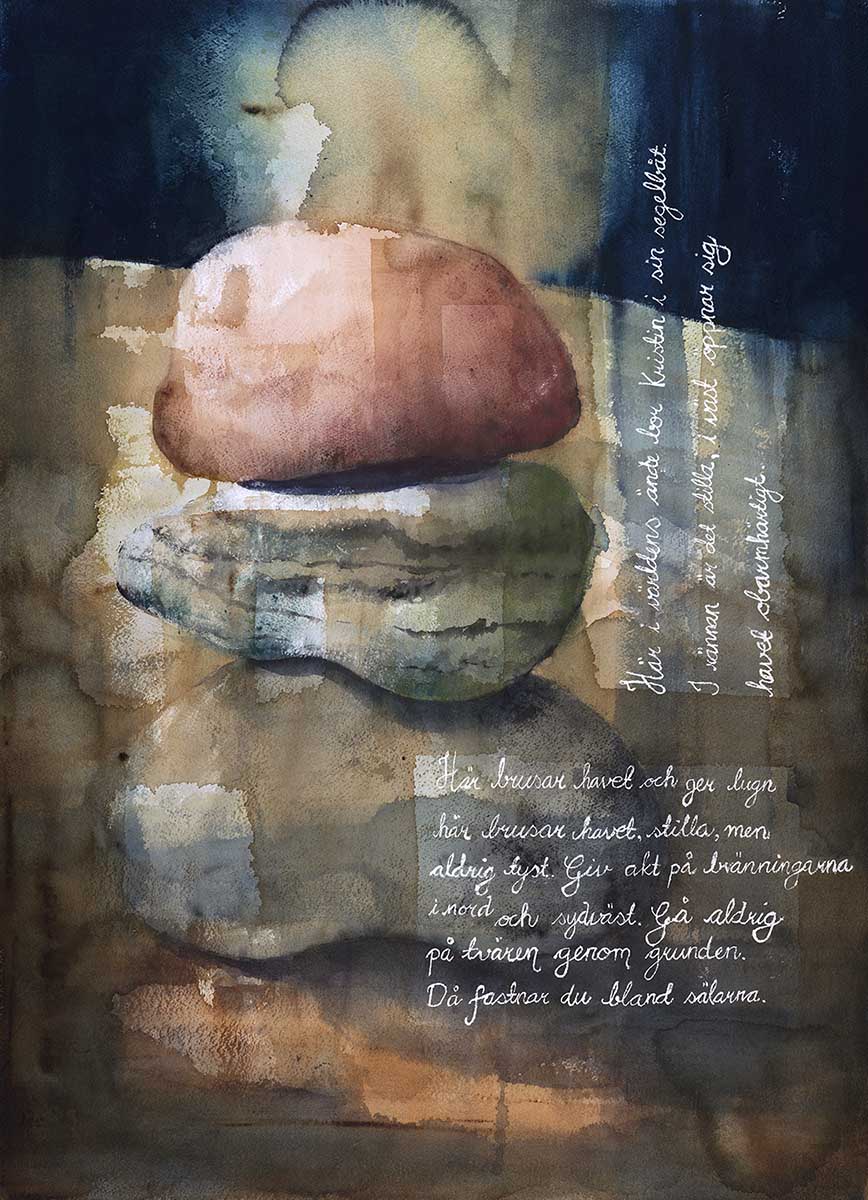 Här i världens ände bor Kristin i sin segelbåt.
I rännan är det stilla, i väst öppnar sig
havet obarmhärtigt.
Här brusar havet och ger lugn
här brusar havet, stilla, men
aldrig tyst. Giv akt på bränningarna
i nord och sydväst. Gå aldrig
på tvären genom grunden.
Då fastnar du bland sälarna.